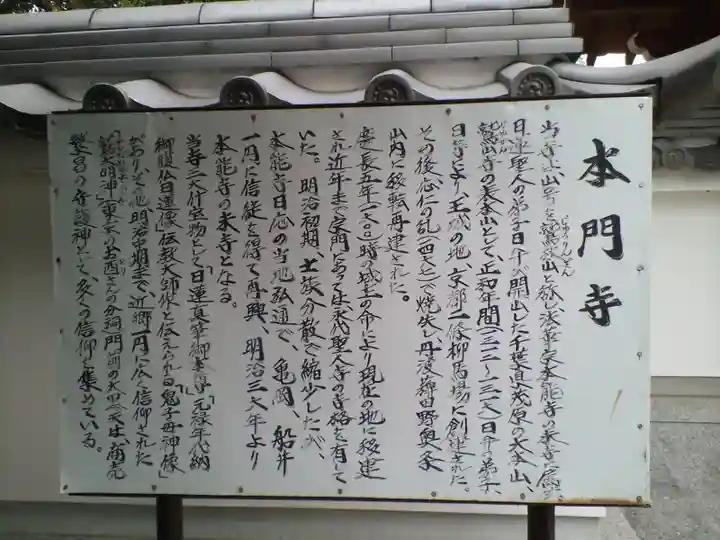 本門寺
当寺は山号を鷲峰山と称し法華宗本能寺の末寺に属す。
日蓮聖人の弟子日弁が開山した千葉県茂原の大本山、
鷲山寺の末本山として、正和年間(一三一二〜一三一六)日弁の弟子、
日 により、王城の地、京都二條柳馬場に創建された。
その後応仁の乱(一四六七)で焼失し、丹波 田野奥条
山内に移転再建された。
慶長五年(一六〇〇)時の城主の命により現在の地に移建
され近年まで宗門にあっては永代聖人寺の寺格を有して
いた。明治初期、士族分散で縮少したが、
本能寺日応の当地弘通で、亀岡、船井
一円に信徒を得て再興、明治三六年より
本能寺の末寺となる。
当寺三大什宝物として「日蓮真筆御本尊」「元禄年代納
御腹仏日蓮像」「伝教大師作と伝えられる鬼子母神像」
があり、その他明治中期まで近郷一円に広く信仰された
「鷲大明神」(東京のお酉さんの分祠)門前の大黒天は、商売
繁昌の守護神として、多くの信仰を集めている。